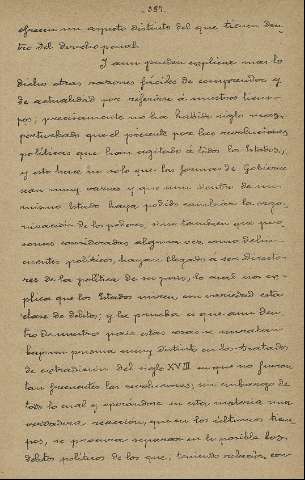 - 387 -
ofrecen un aspecto distinto del que tienen den-
tro del derecho penal.
Y aun pueden explicar mas lo
dicho otras razones fáciles de comprender y
de actualidad por referirse á nuestros tiem-
pos; precisamente no ha habido siglo mas
perturbado que el presente por las revoluciones
políticas que han agitado á todos los Estados,
y esto hace no solo que las formas de Gobierno
sean muy varias y que aun dentro de un
mismo Estado haya podido cambiar la orga-
nización de los poderes, sino tambien que per-
sonas consideradas alguna vez como delin-
cuentes políticos, hayan llegado á ser directo-
res de la política de su pais, lo cual nos ex-
plica que los Estados miren con variedad esta
clase de delitos; y la prueba es que aun den-
tro de nuestro pais estas cosas se miraban
bajo un prisma muy distinto en los tratados
de extradición del siglo XVIII en que no fueron
tan frecuentes las revoluciones; sin embargo de
todo lo cual y operándose en esta materia una
verdadera reacción, que en los últimos tiem-
pos, se procura separar en lo posible los
delitos políticos de los que, teniendo relación, con